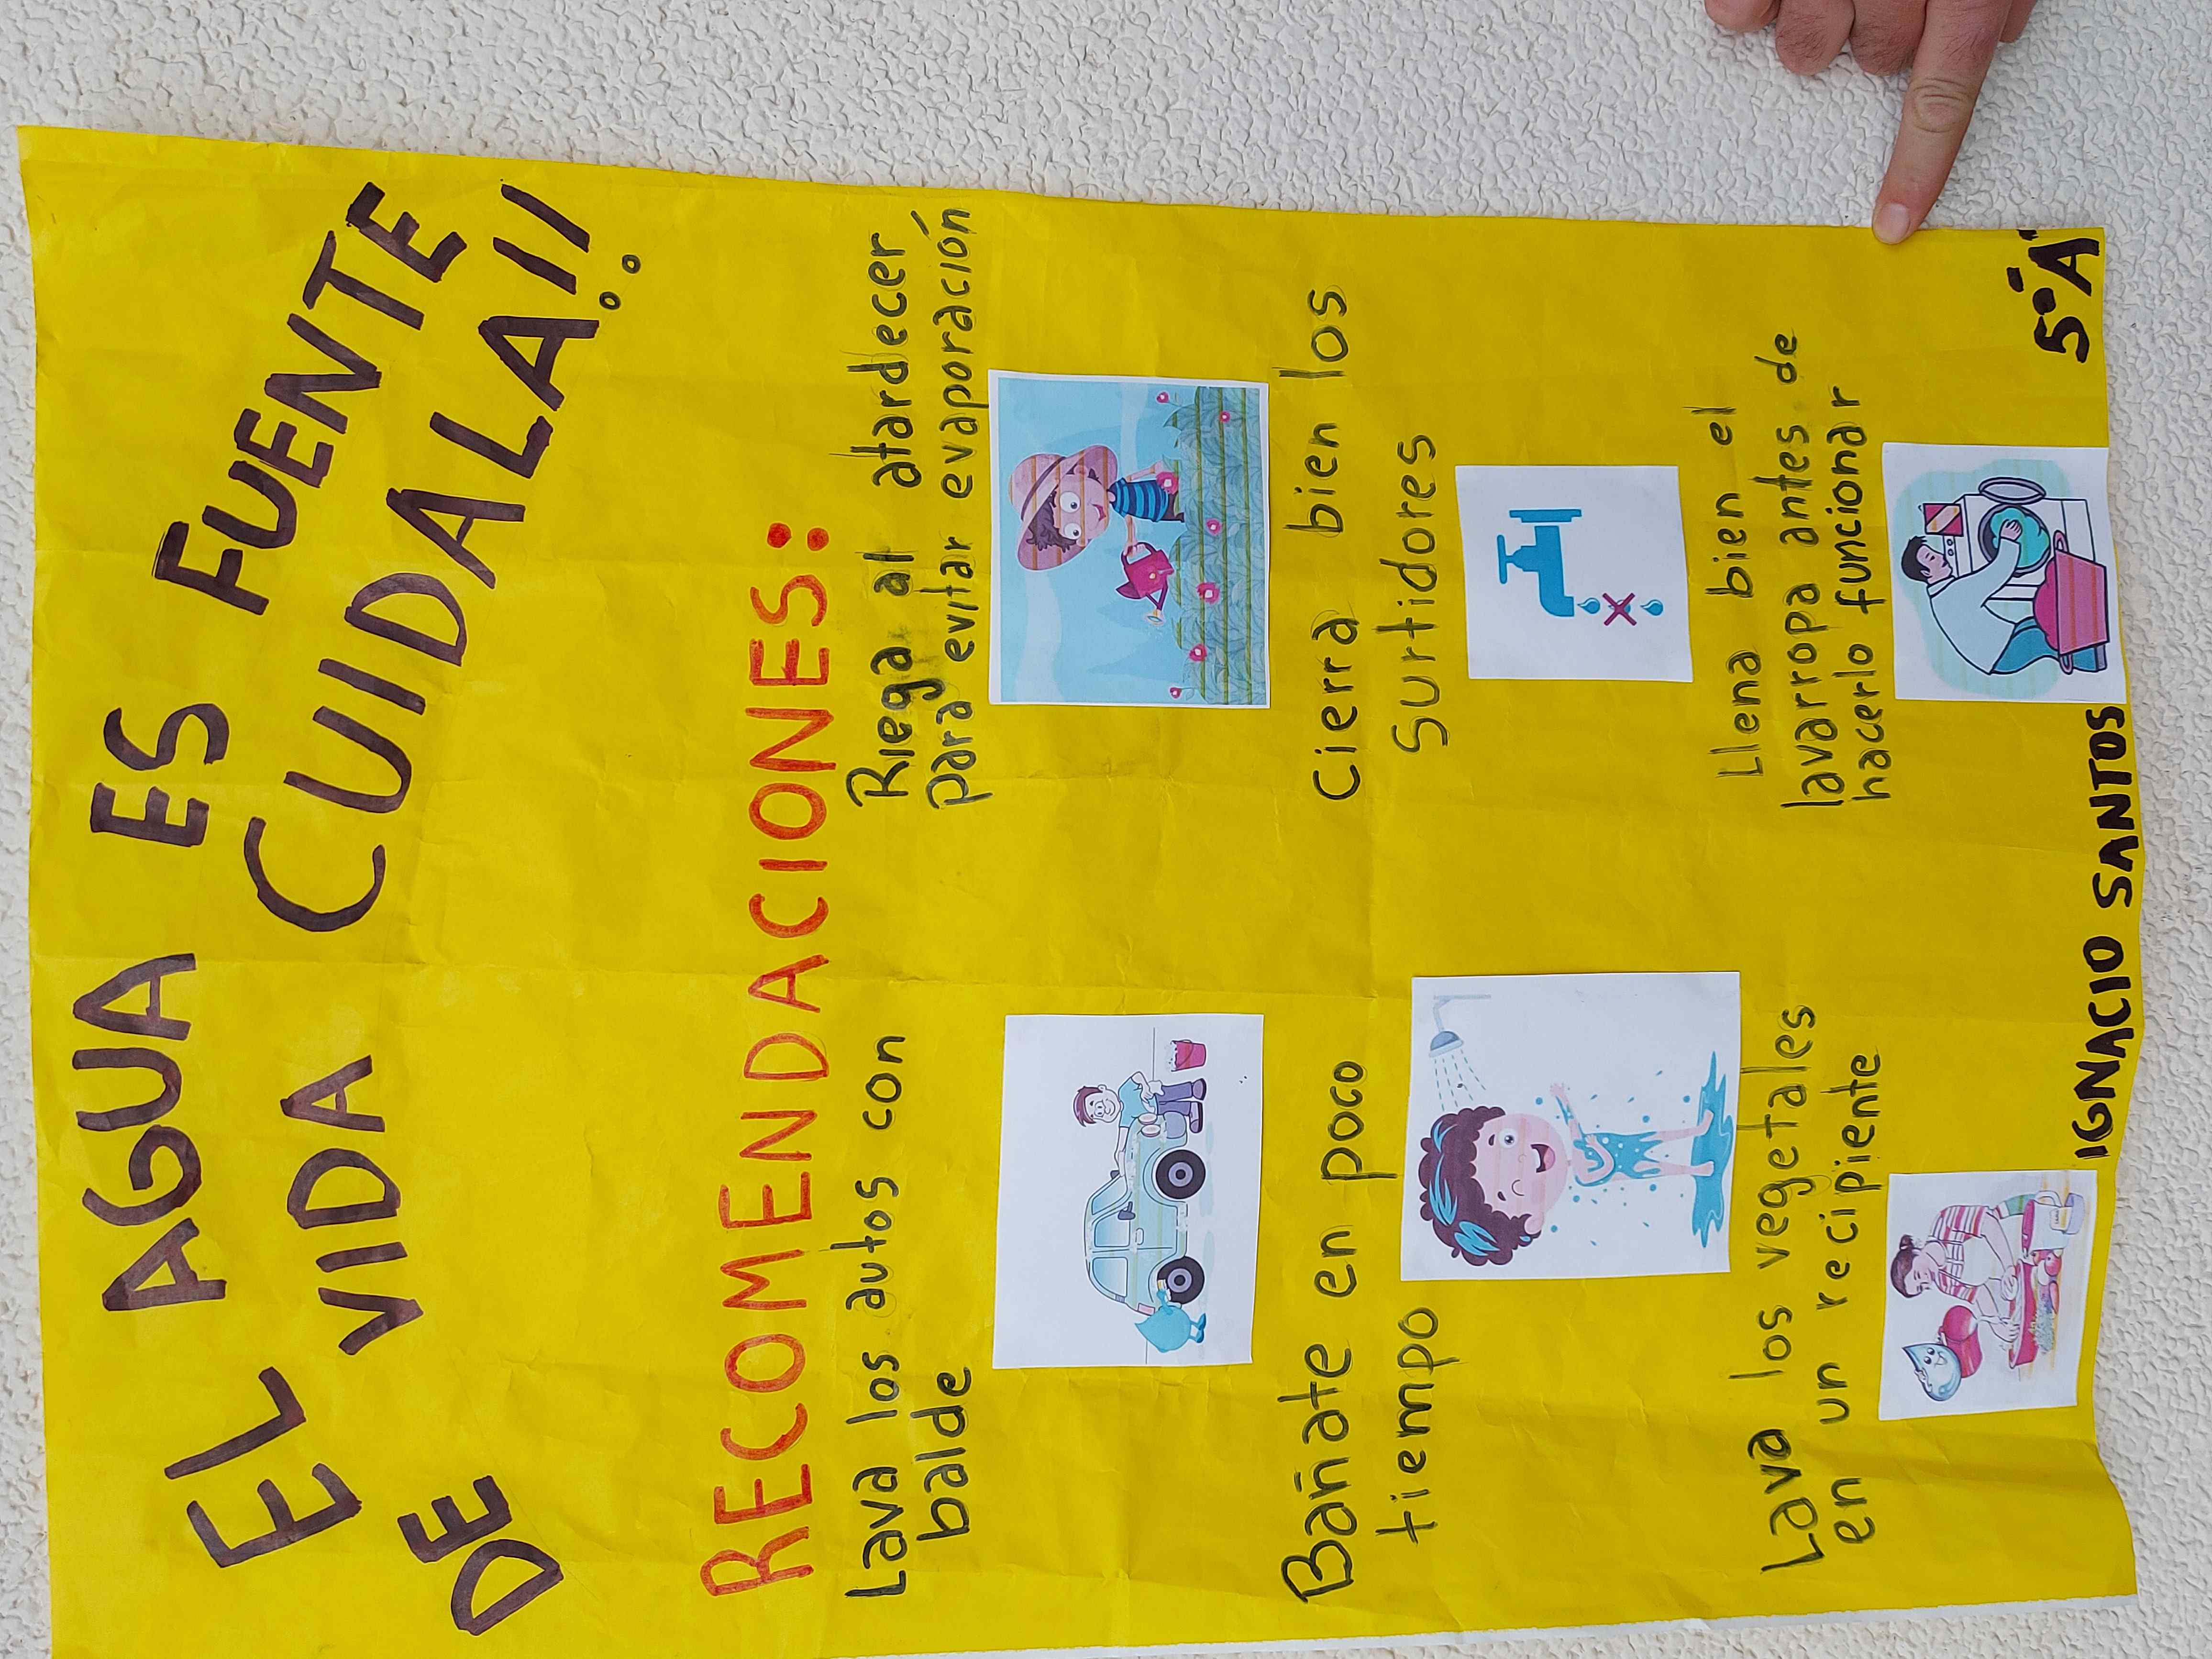 EL AGUA ES FUENTE
DE VIDA CUIDALA!!
RECOMENDACIONES:
Lava los autos con
balde
Riega al atardecer
para evitar evaporación
Bañate en poco
tiempo
Cierra bien los
Surtidores
Lava los vegetales
en un recipiente
Llena bien el
lavarropa antes de
hacerlo funcionar
IGNACIO SANTOS
5° "A"